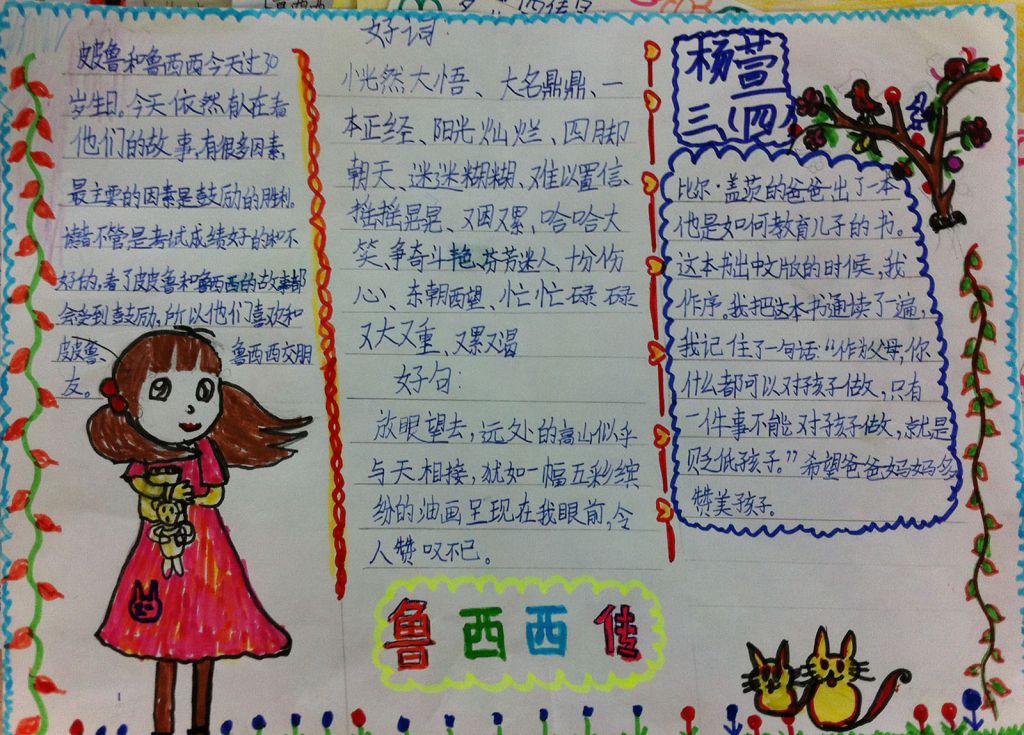 皮皮鲁和鲁西西今天过30
岁生日。今天依然有人在看
他们的故事,有很多因素,
最主要的因素是鼓励的胜利。
读者不管是考试成绩好的和不
好的,看了皮皮鲁和鲁西西的故事都
会受到鼓励。所以他们喜欢和
皮皮鲁、鲁西西交朋
友。
好词:
恍然大悟、大名鼎鼎、一
本正经、阳光灿烂、四脚
朝天、迷迷糊糊、难以置信、
摇摇晃晃、又困又累、哈哈大
笑、争奇斗艳、芬芳迷人、十分伤
心、东朝西望、忙忙碌碌
又大又重、又累又渴
好句:
放眼望去,远处的高山似乎
与天相接,犹如一幅五彩缤
纷的油画呈现在我眼前,令
人赞叹不已。
鲁西西传
杨萱
三、(四)
比尔·盖茨的爸爸出了一本
他是如何教育儿子的书。
这本书出中文版的时候,我
作序。我把这本书通读了一遍,
我记住了一句话:“作为父母,你
什么都可以对孩子做,只有
一件事不能对孩子做,就是
贬低孩子。”希望爸爸妈妈多
赞美孩子。